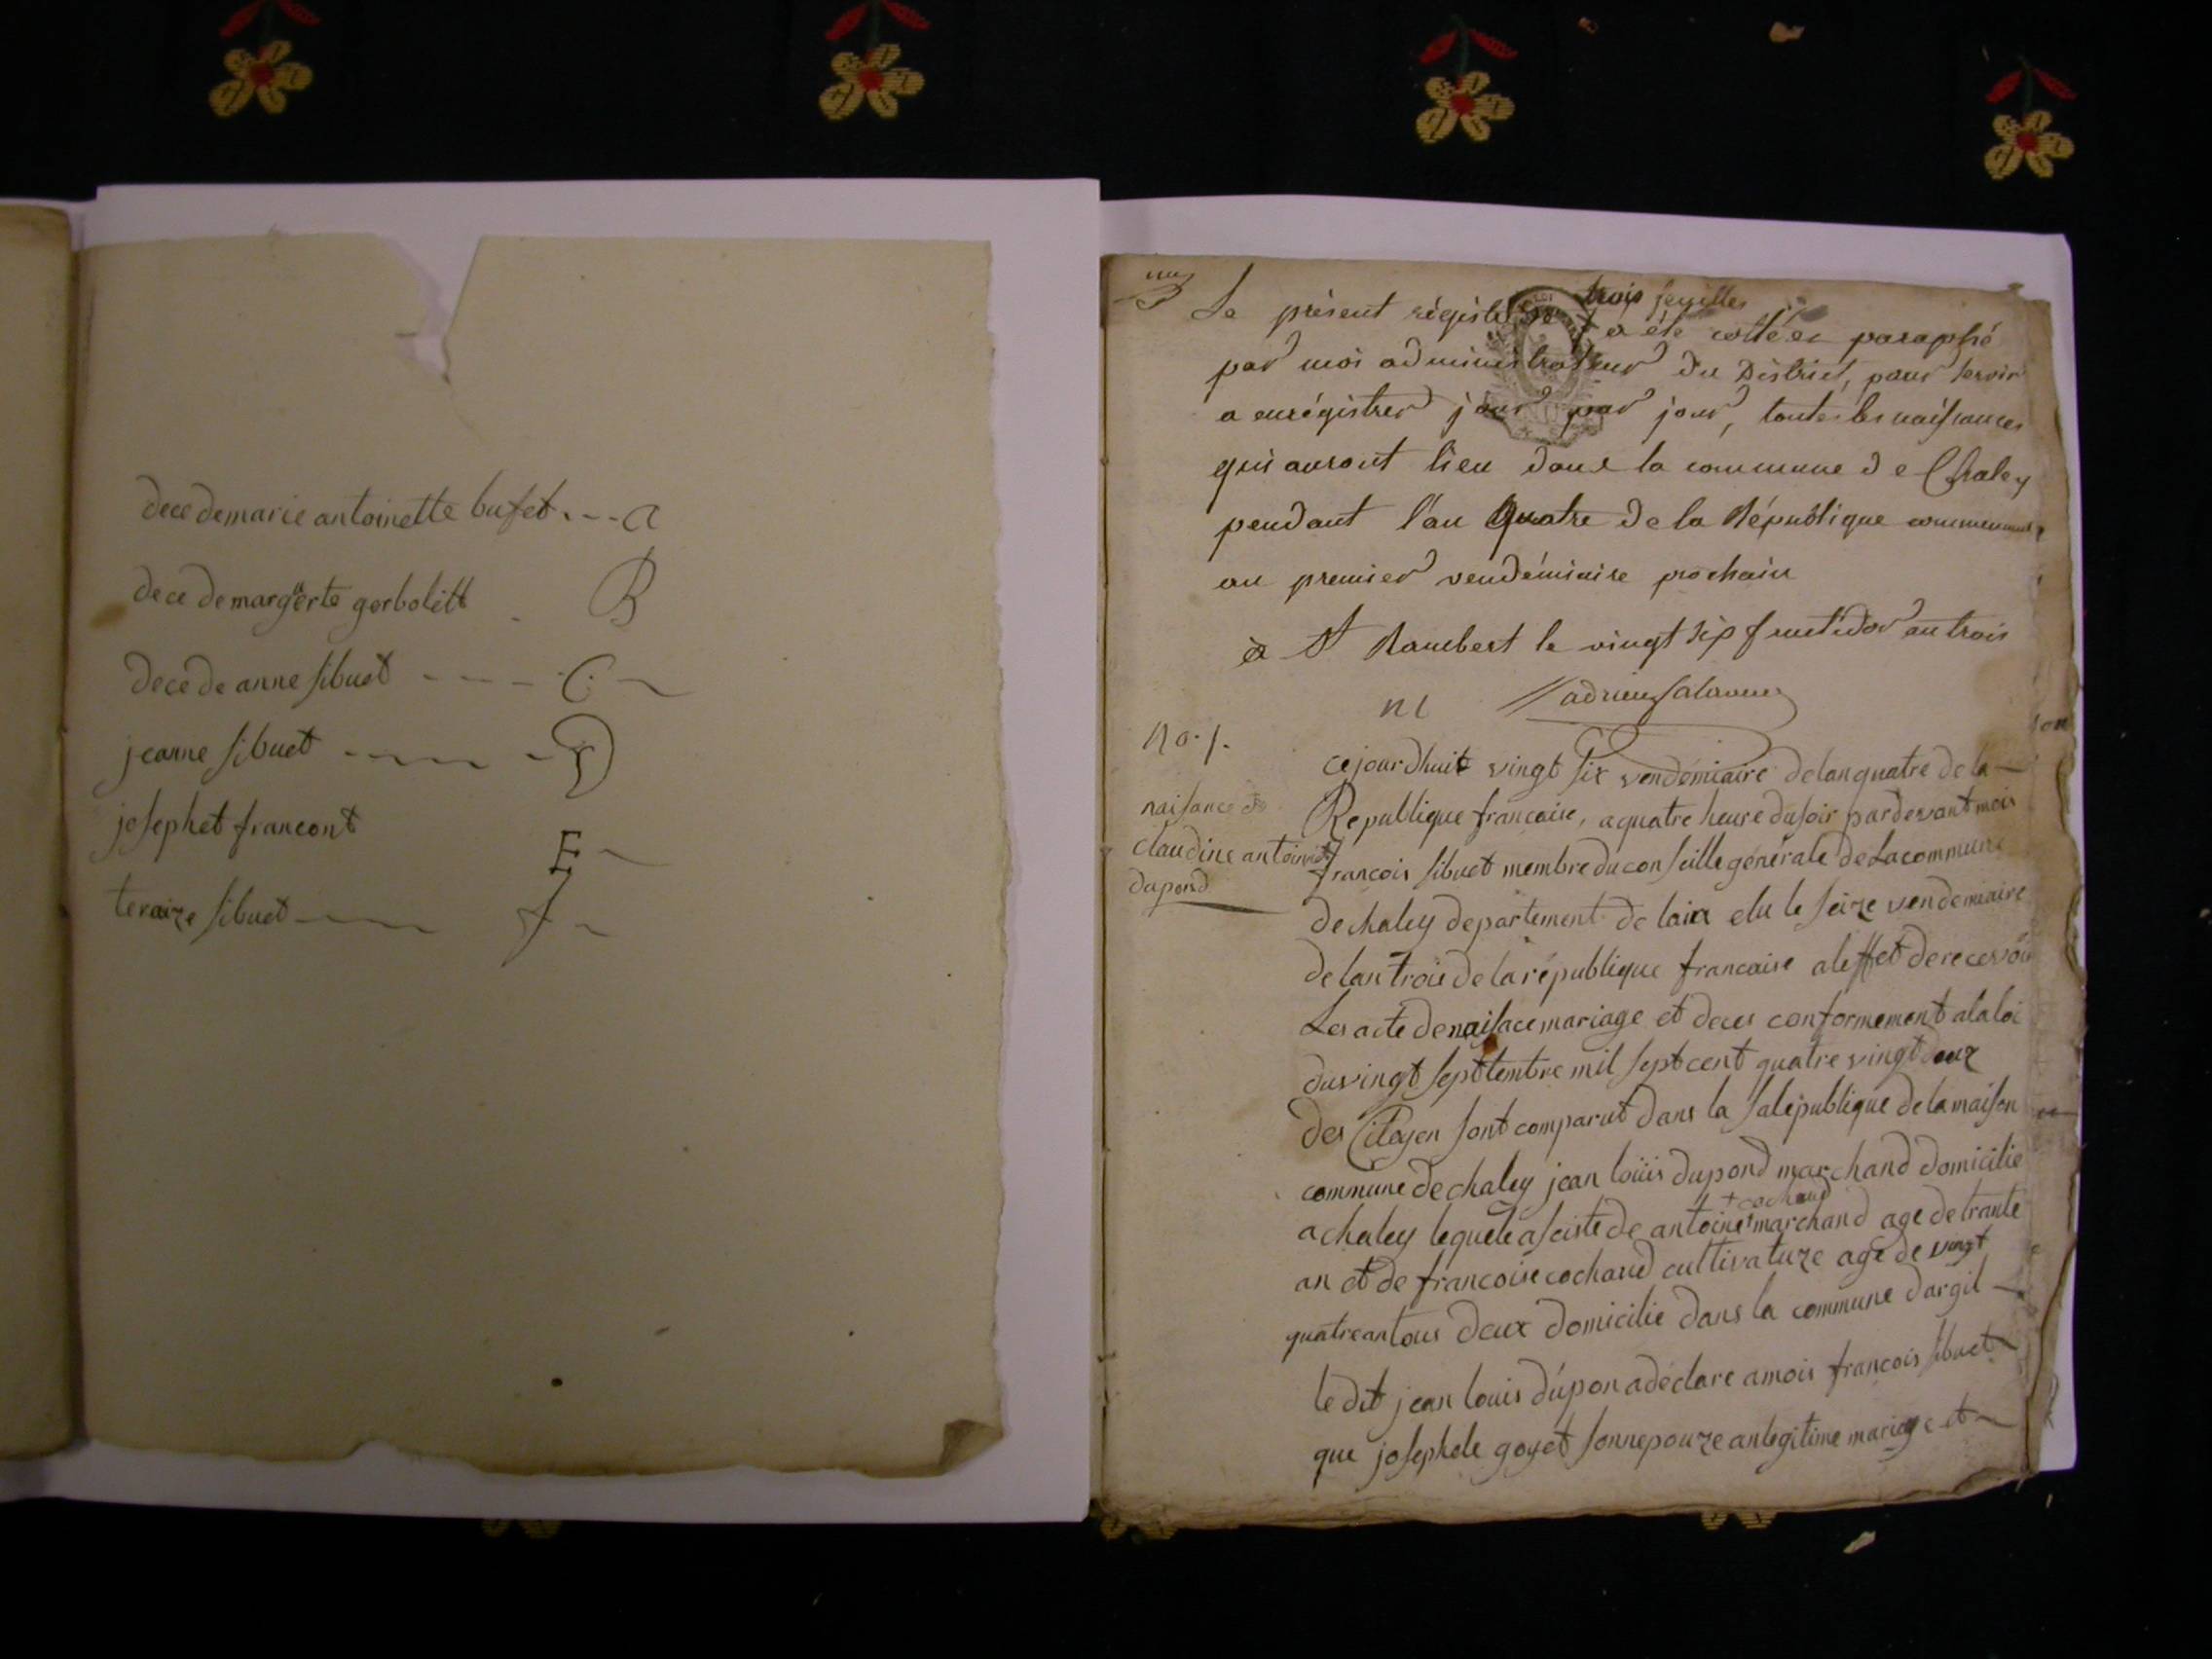 dece de marie antoinette bufet . - - a
dece de marguerte gorbolitt . B
dece de anne sibuet - - - - C
jeanne sibuet - - - - D
josephet francont E
teraize sibuet - - - f
Le présent régistre de trois feuilles a été cotté et paraphé
par moi administrateur du District, pour servir
a enrégistrer jour par jour, toutes les naissances
qui auront lieu dans la commune de Chaley
pendant l'an Quatre de la République commencant
au premier vendémiaire prochain
a St Rambert le vingt six fructidor an trois
No. 1.
naisance de
claudine antoinette
dupond
cejourdhuit vingt six vendémiaire de lan quatre de la
Republique francaise, a quatre heure du soir pardevant mois
francois sibuet membre du conseille générale de la commune
de chaley departement de lain elu le seize vendemiaire
de lan trois de la république francaise a leffet de recevoir
Les acte de naisace mariage et deces conformement a la loi
du vingt septtembre mil sept cent quatre vingt douz
des Citoyen sont comparut dans la sale publique de la maison
commune de chaley jean louis dupond marchand domicilie
a chaley lequele asciste de antoine + cochaud marchand age de trante
an et de francoise cochaud cultivatuze age de vingt
quatre an tous deux domicilie dans la commune dargil
le dit jean louis dupon a déclare a mois francois sibuet
que josephele goyet sonnepouze an legitime mariage et